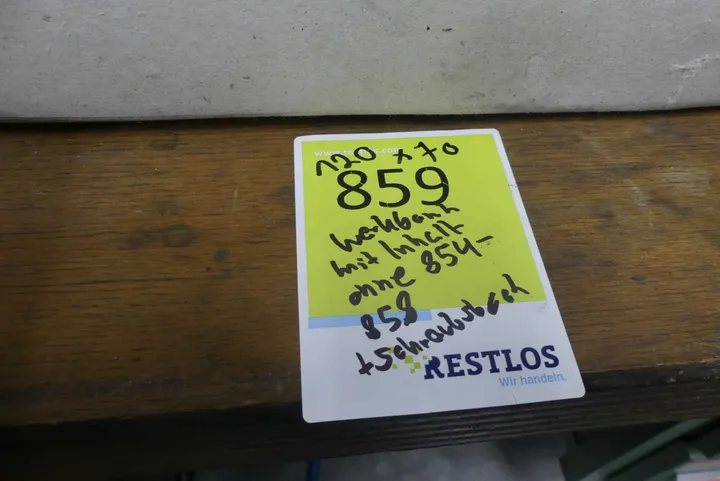 120 x 70
859
Werkbank
mit Inhalt
ohne 854-
858
+ Schraubstock
RESTLOS
Wir handeln.